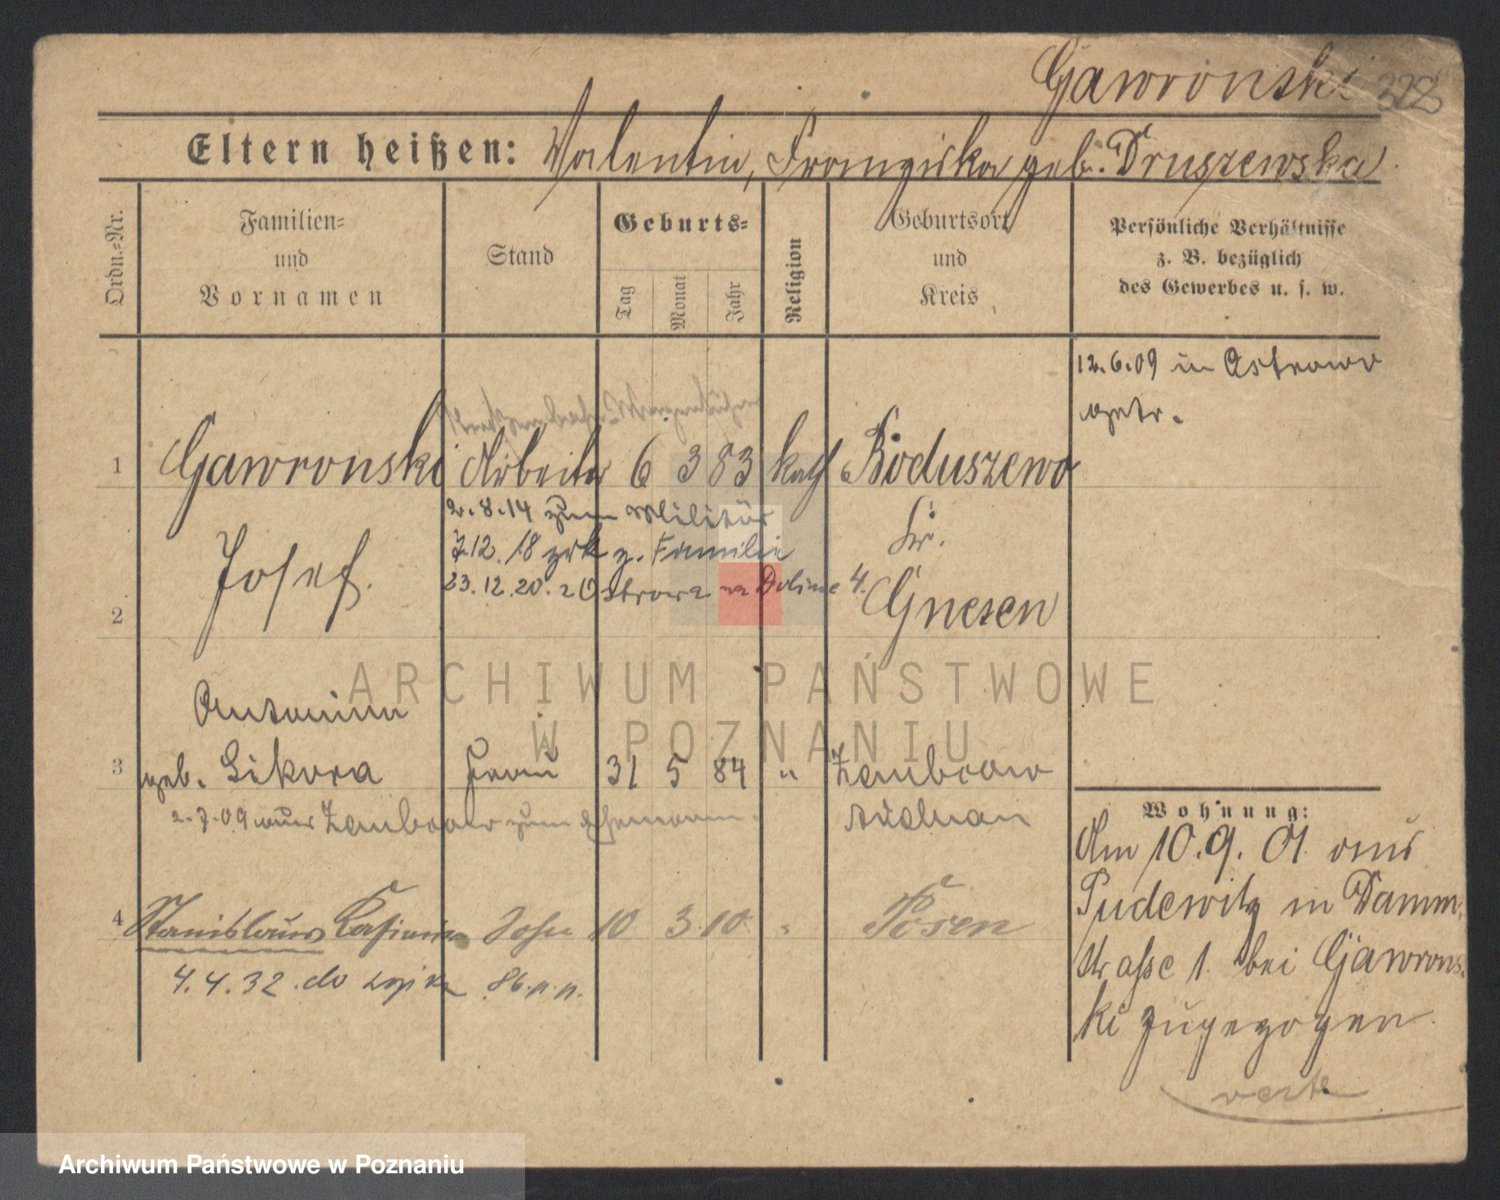 Gawronski 328
Eltern heißen: Valentin, Franziska geb. Druszewska
Ordn.-Nr.
Familien-
und
Vornamen
Stand
Geburts-
Tag
Monat
Jahr
Religion
Geburtsort
und
Kreis
Persönliche Verhältnisse
z. B. bezüglich
des Gewerbes u. s. w.
12.6.09 in Ostrowo
getr.
1 Gawronski Arbeiter 6 3 83 kath Boduszewo
2.8.14 zum Militär
Josef. 7.12.18 zrk z. Familie Kr.
23.12.20. Ostrowa na Dolinie 4.
2 Gnesen
Antonina
3 geb. Sikora Frau 31 5 84 "
2.7.09 aus zum Ehemann.
Wohnung:
Am 10.9.01 aus
Pudewitz in Damm-
straße 1. bei Gawrons-
ki zugezogen.
verte
4 Stanislaus Kasimir Sohn 10 3 10 " Posen
4.4.32. do
ARCHIWUM PAŃSTWOWE
W POZNANIU
Archiwum Państwowe w Poznaniu